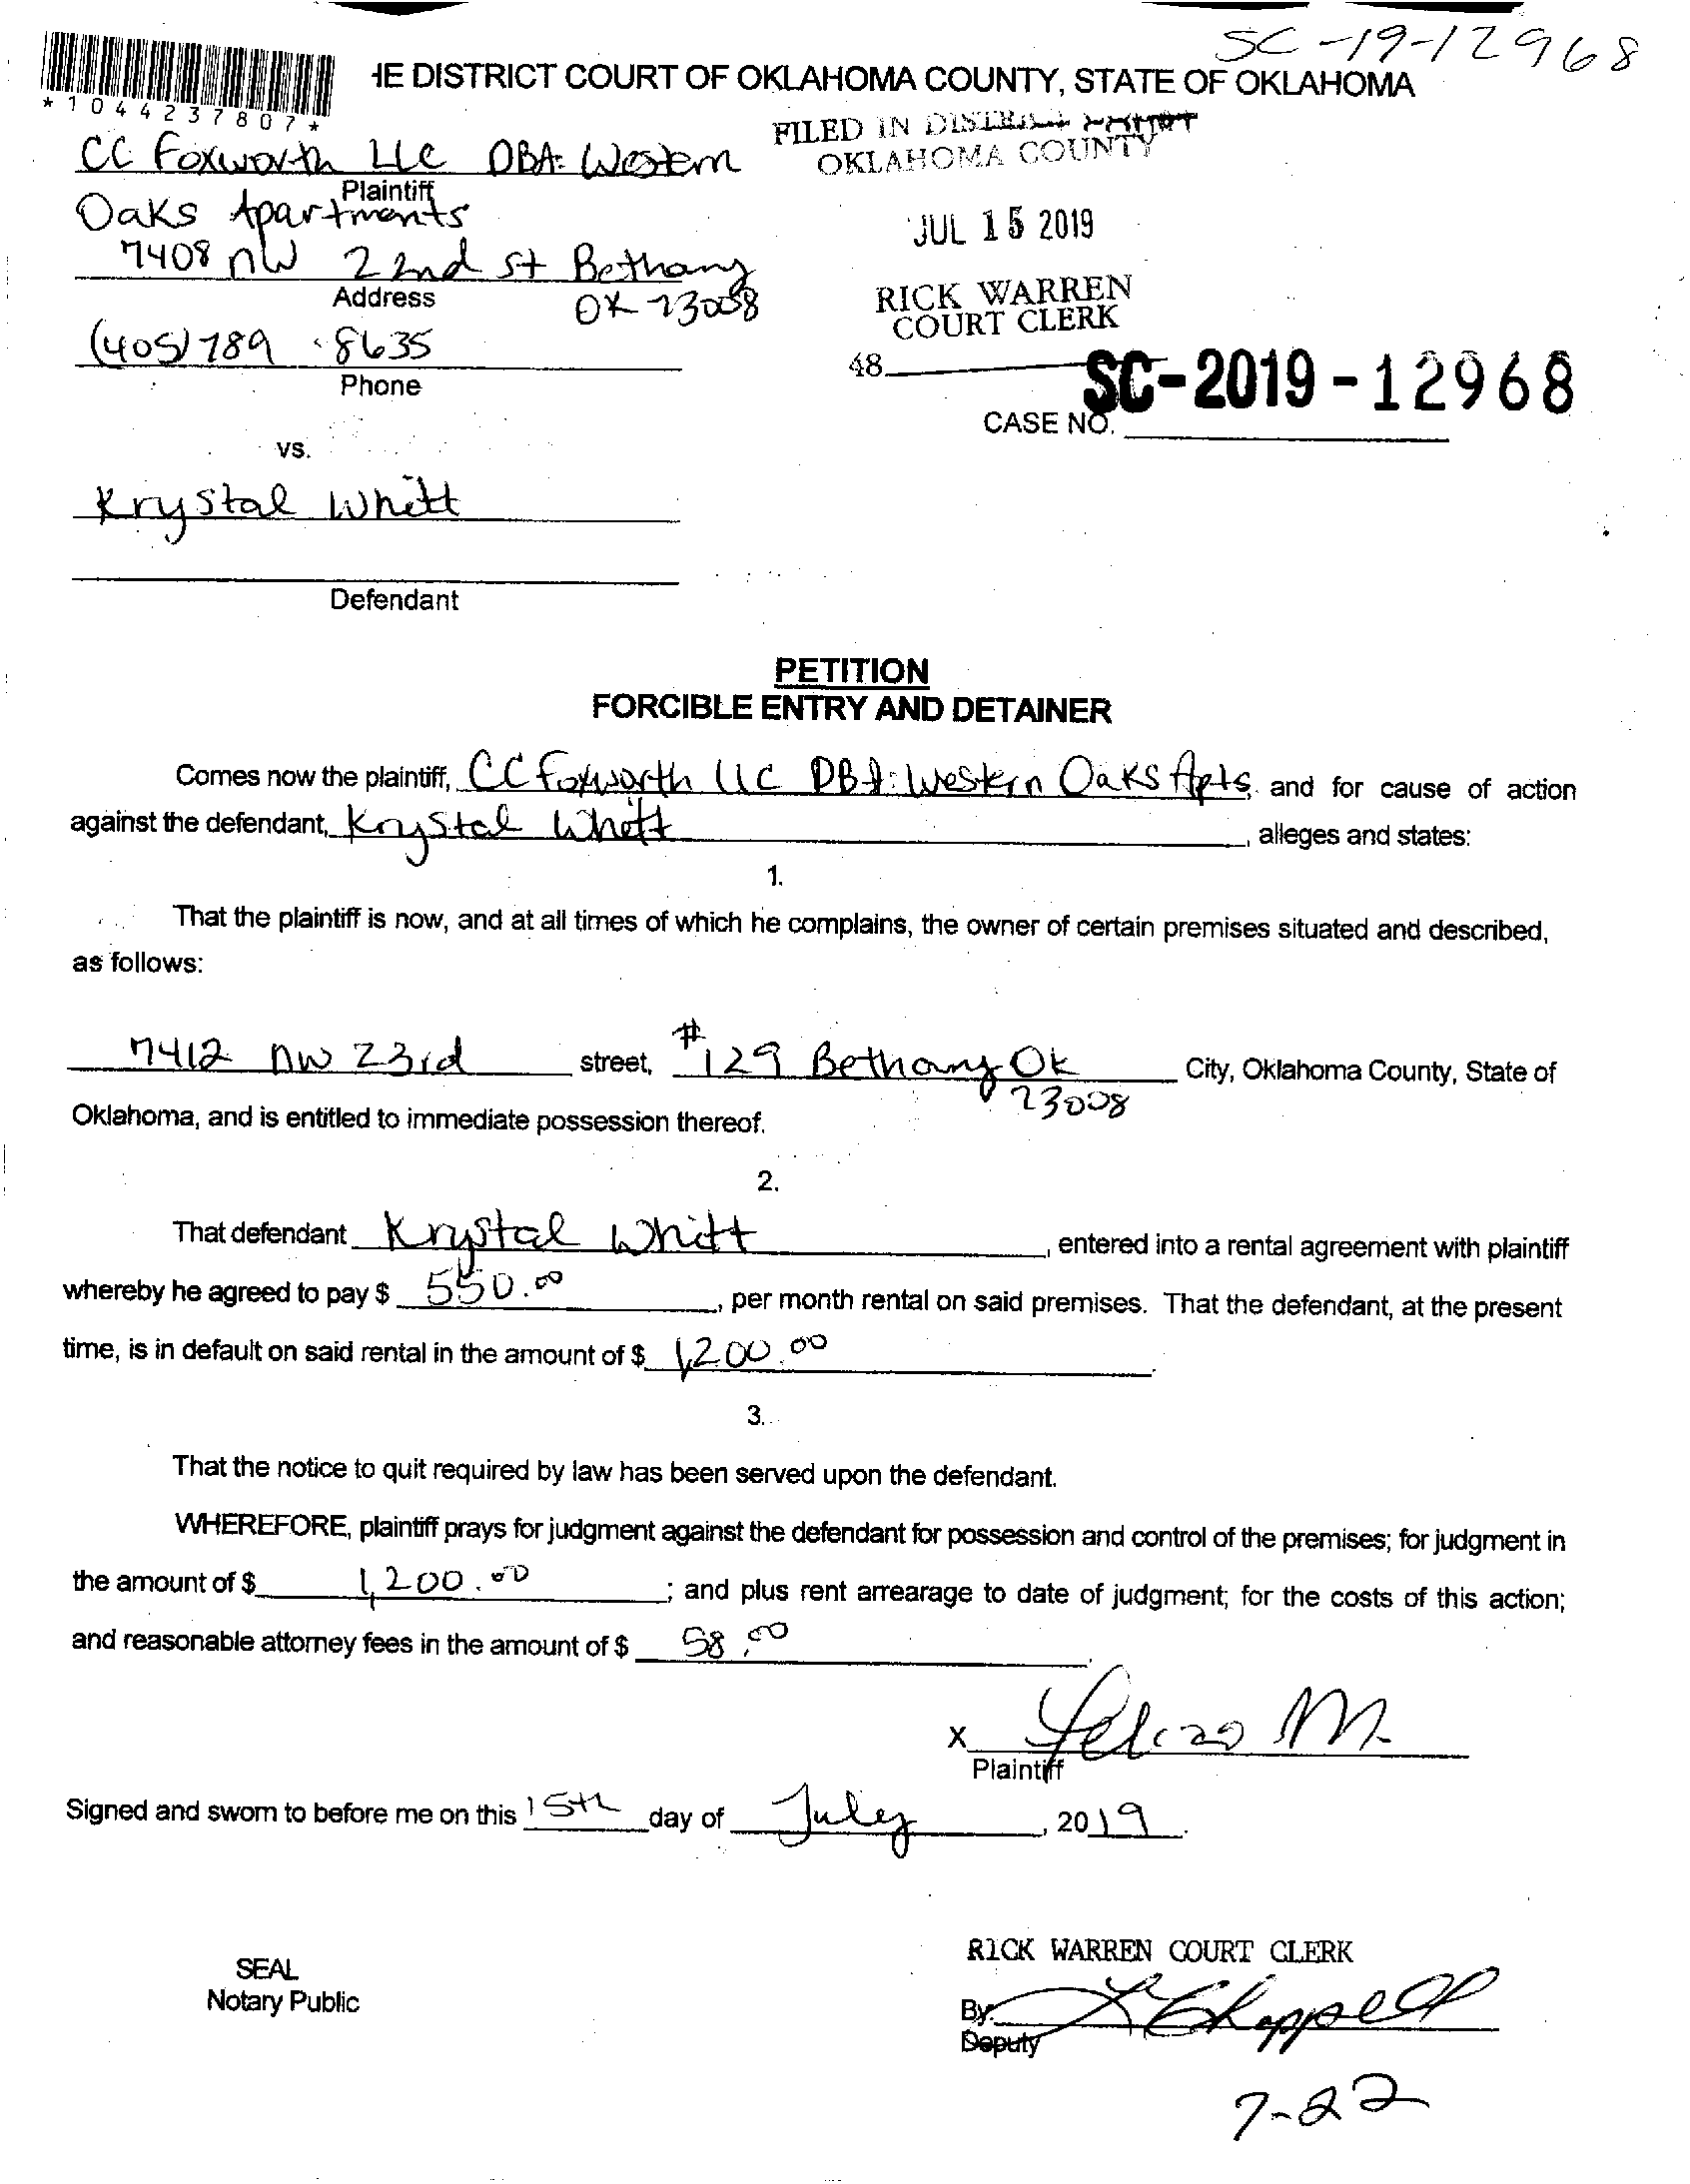 SC-19-12968
*1044237807*
HE DISTRICT COURT OF OKLAHOMA COUNTY, STATE OF OKLAHOMA
FILED IN DISTRICT COURT
OKLAHOMA COUNTY
CC Foxworth LLC DBA: Western
Plaintiff
Oaks Apartments
JUL 15 2019
7408 NW 22nd St Bethany
Address
OK 73008
RICK WARREN
COURT CLERK
(405) 789-8635
Phone
48
SC-2019-12968
CASE NO.
vs.
Krystal Whitt
Defendant
PETITION
FORCIBLE ENTRY AND DETAINER
Comes now the plaintiff, CC Foxworth LLC DBA: Western Oaks Apts, and for cause of action
against the defendant, Krystal Whitt, alleges and states:
1.
That the plaintiff is now, and at all times of which he complains, the owner of certain premises situated and described,
as follows:
7412 NW 23rd street, #129 Bethany OK City, Oklahoma County, State of
73008
Oklahoma, and is entitled to immediate possession thereof.
2.
That defendant Krystal Whitt, entered into a rental agreement with plaintiff
whereby he agreed to pay $ 550.00, per month rental on said premises. That the defendant, at the present
time, is in default on said rental in the amount of $ 1,200.00.
3.
That the notice to quit required by law has been served upon the defendant.
WHEREFORE, plaintiff prays for judgment against the defendant for possession and control of the premises; for judgment in
the amount of $ 1,200.00; and plus rent arrearage to date of judgment; for the costs of this action;
and reasonable attorney fees in the amount of $ 58.00.
X M.
Plaintiff
Signed and sworn to before me on this 15th day of July, 2019.
SEAL
Notary Public
RICK WARREN COURT CLERK
By: Chappell
Deputy
7-22